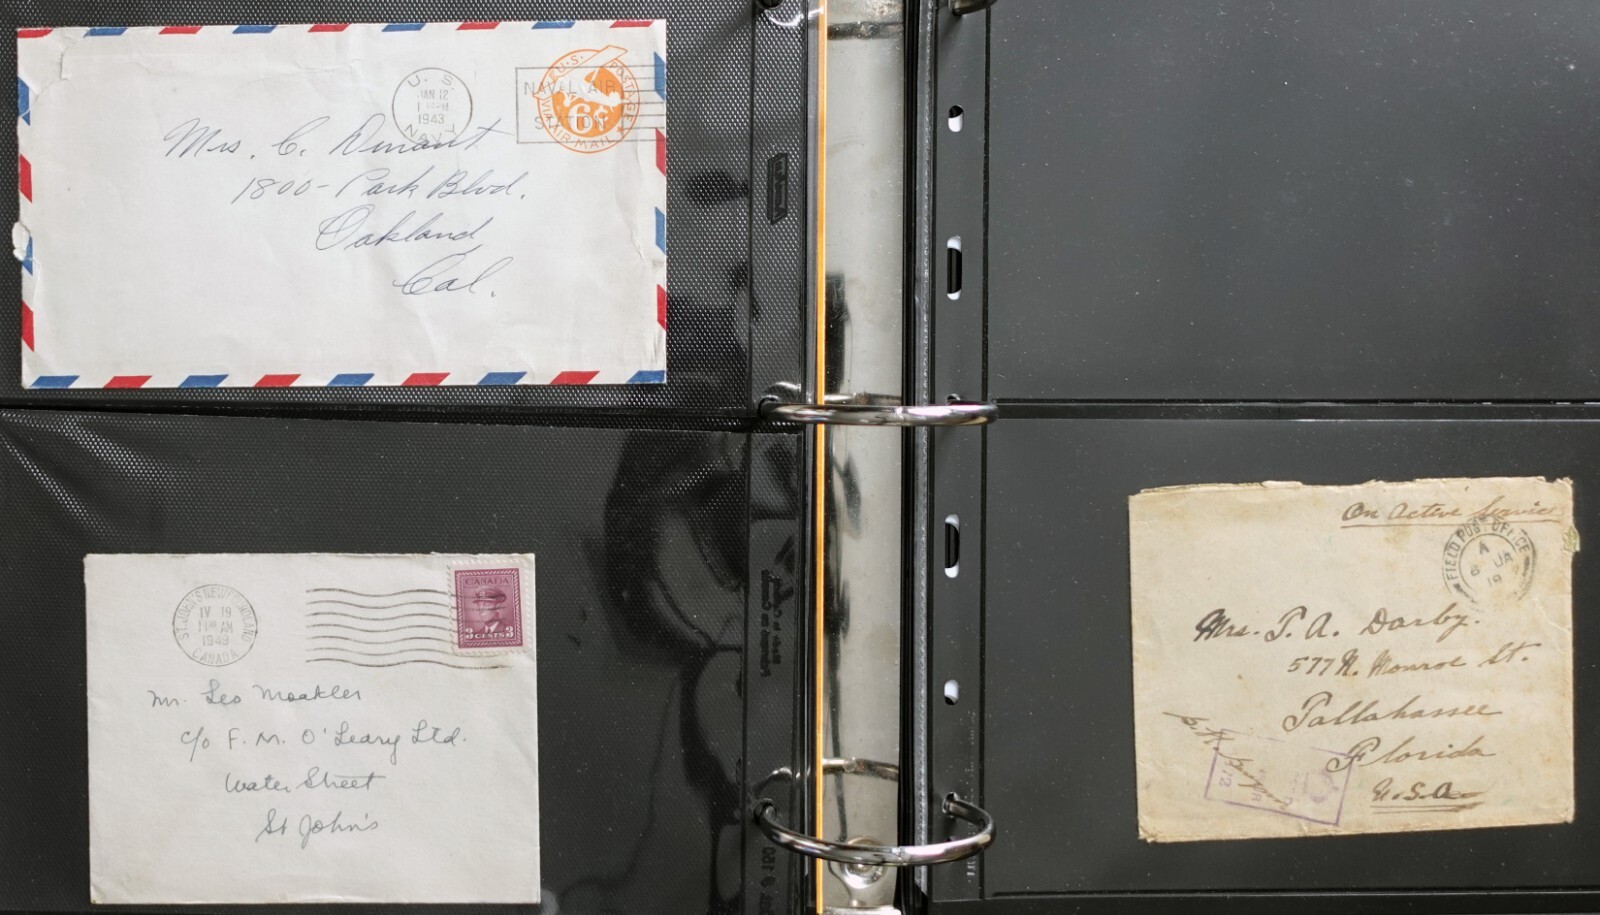 U.S.
JAN 12
1943
NAVY
NAVAL AIR
STATION
U.S. POSTAGE
6¢
VIA AIR MAIL
Mrs. C. Dinant
1800 - Park Blvd.
Oakland
Cal.
ST. JOHN'S NEWFOUNDLAND
IV 19
11 AM
CANADA
CANADA
3 CENTS 3
Mr. Leo Moakler
c/o F. M. O'Leary Ltd.
Water Street
St John's
On Active Service
FIELD POST OFFICE
A
6 JA
19
Mrs. T. A. Darby.
577 N. Monroe St.
Tallahassee
Florida
U.S.A.